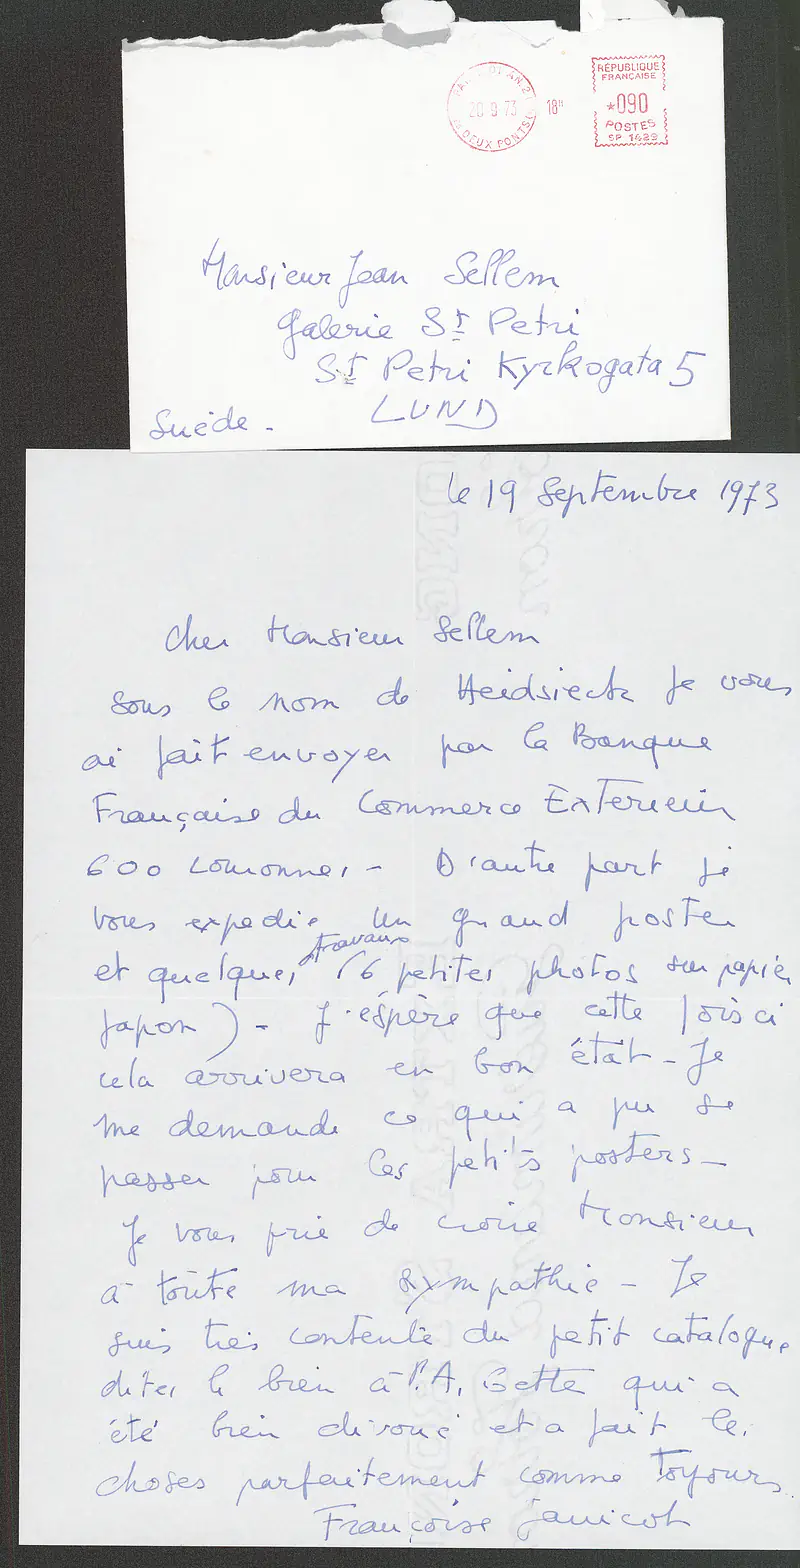 20 9 73
18H
RÉPUBLIQUE
FRANÇAISE
*090
POSTES
SP 1429
Monsieur Jean Sellem
Galerie St Petri
St Petri Kyrkogata 5
LUND
Suède.
le 19 Septembre 1973
Cher Monsieur Sellem
sous le nom de Heidsieck je vous
ai fait envoyer par la Banque
Française du Commerce Exterieur
600 couronnes - D'autre part je
vous expedie un grand poster
et quelques travaux (6 petites photos sur papier
Japon) - J'espère que cette fois ci
cela arrivera en bon état - Je
me demande ce qui a pu se
passer pour les petits posters -
Je vous prie de croire Monsieur
à toute ma sympathie - Je
suis très contente du petit catalogue
dites le bien à P.A. Gette qui a
été bien dévoué et a fait les
choses parfaitement comme toujours
Françoise Janicot